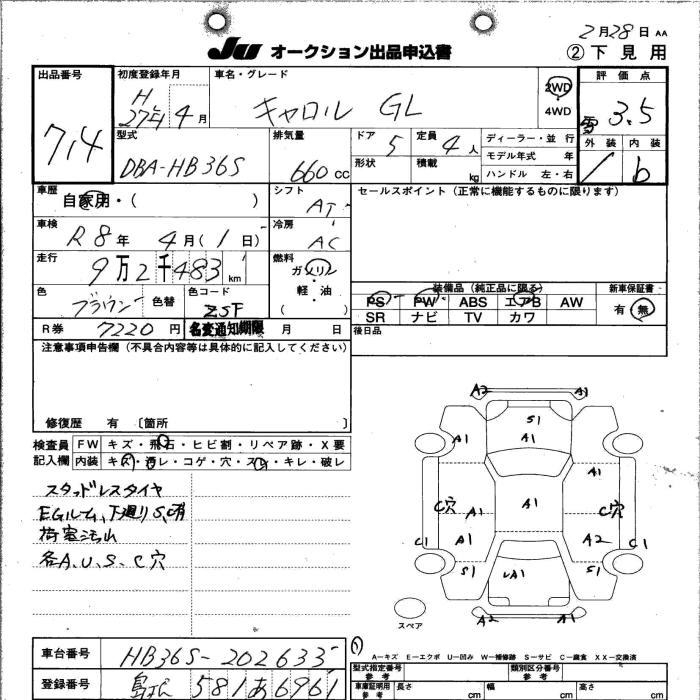 2月28日 AA
JU オークション出品申込書
② 下見用
出品番号
714
初度登録年月
H
27年 4月
車名・グレード
キャロル GL
2WD
4WD
評価点
3.5
外装 内装
b
型式
DBA-HB36S
排気量
660 cc
ドア 5
形状
定員 4人
積載 kg
ディーラー・並行
モデル年式 年
ハンドル 左・右
車歴
自家用・( )
シフト
AT
セールスポイント(正常に機能するものに限ります)
車検
R8年 4月(1日)
冷房
AC
走行
9万2千483km
燃料
ガソリン
軽・油
( )
色
ブラウン
色替
色コード
ZSF
装備品(純正品に限る)
PS PW ABS エアB AW
SR ナビ TV カワ
新車保証書
有 無
R券 7220円
名変通知期限 月 日
後日品
注意事項申告欄(不具合内容等は具体的に記入してください)
修復歴 有〔箇所 〕
検査員
記入欄
FW キズ・飛石・ヒビ割・リペア跡・X要
内装 キズ・汚レ・コゲ・穴・スレ・キレ・破レ
スタッドレスタイヤ
EGルーム、下廻りS,C有
荷室汚れ
各A、U、S、C穴
A2 A1
S1
A1 A1
A1
C穴 A1 A1 C穴
C1 A1 A2 C1
S1 A1 S1
A2 A1
スペア
A-キズ E-エクボ U-凹み W-補修跡 S-サビ C-腐食 XX-交換済
車台番号
HB36S-202633
登録番号
581 あ 6961
型式指定番号
参考
類別区分番号
参考
車庫証明用
参考
長さ cm
幅 cm
高さ cm